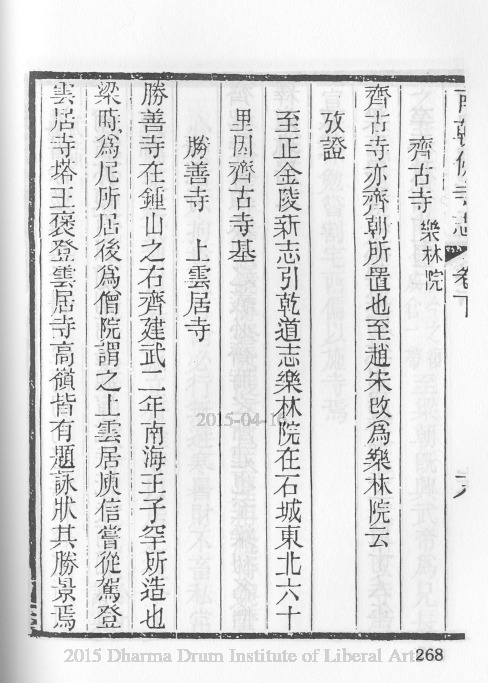 南朝佛寺志 卷下
齊古寺 樂林院
齊古寺亦齊朝所置也至趙宋改爲樂林院云
攷證
至正金陵新志引乾道志樂林院在石城東北六十
里因齊古寺基
勝善寺 上雲居寺
勝善寺在鍾山之右齊建武二年南海王子罕所造也
梁時爲尼所居後爲僧院謂之上雲居庾信嘗從駕登
雲居寺塔王褒登雲居寺高嶺皆有題詠狀其勝景焉
2015-04-10
2015 Dharma Drum Institute of Liberal Arts
268